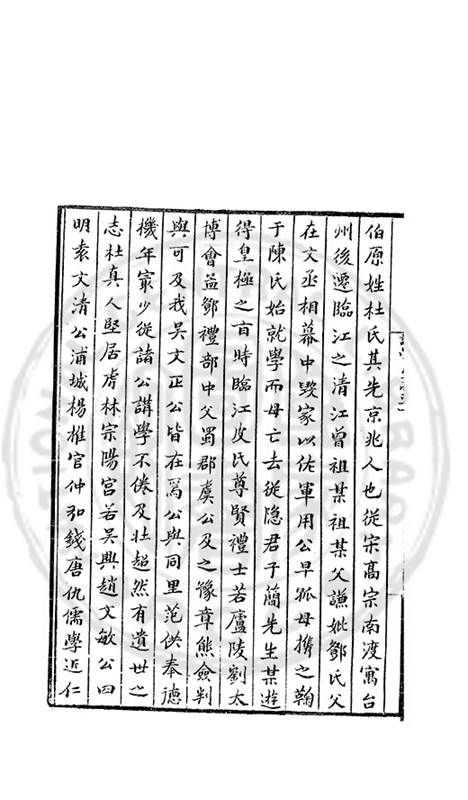 伯原姓杜氏其先京兆人也從宋髙宗南渡寓台
州後遷臨江之清江曾祖某祖某父謙妣鄒氏父
在文丞相幕中毀家以佐軍用公早孤母携之鞠
于陳氏始就學而母亡去從隐君子蕳先生某遊
得皇極之旨時臨江皮氏尊賢禮士若廬陵劉太
博會孟鄒禮部中父蜀郡虞公及之豫章熊僉判
與可及我吳文正公皆在焉公與同里范供奉德
機年寔少從諸公講學不倦及壮超然有遺世之
志杜真人堅居虎林宗陽宫若吳興趙文敏公四
明袁文清公浦城楊推官仲弘錢唐仇儒學近仁